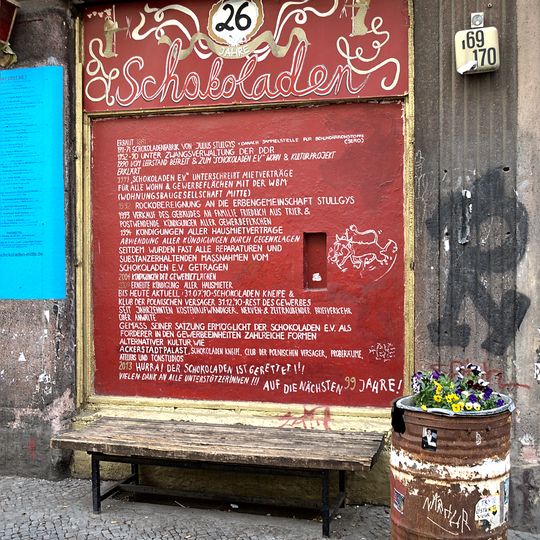 26
JAHRE
Schokoladen
169
170
ERBAUT
1911-71 SCHOKOLADENFABRIK VON JULIUS STULLGYS • DANACH SAMMELSTELLE FÜR SEKUNDÄRROHSTOFFE
1952-90 UNTER ZWANGSVERWALTUNG DER DDR (SERO)
1990 VOM LEERSTAND BEFREIT & ZUM SCHOKOLADEN E.V. WOHN & KULTURPROJEKT
ERKLÄRT
"SCHOKOLADEN E.V." UNTERSCHREIBT MIETVERTRÄGE
FÜR ALLE WOHN & GEWERBEFLÄCHEN MIT DER WBM
(WOHNUNGSBAUGESELLSCHAFT MITTE)
RÜCKÜBEREIGNUNG AN DIE ERBENGEMEINSCHAFT STULLGYS
VERKAUF DES GEBÄUDES AN FAMILIE FRIEDRICH AUS TRIER &
POSTWENDENDE KÜNDIGUNGEN ALLER GEWERBEFLÄCHEN
KÜNDIGUNGEN ALLER HAUSMIETVERTRÄGE
ABWENDUNG ALLER KÜNDIGUNGEN DURCH GEGENKLAGEN
SEITDEM WURDEN FAST ALLE REPARATUREN UND
SUBSTANZERHALTENDEN MASSNAHMEN VOM
SCHOKOLADEN E.V. GETRAGEN
KÜNDIGUNGEN DER GEWERBEFLÄCHEN
ERNEUTE KÜNDIGUNG ALLER HAUSMIETER
BIS HEUTE AKTUELL: 31.07.10-SCHOKOLADEN KNEIPE &
KLUB DER POLNISCHEN VERSAGER, 31.12.10-REST DES GEWERBES
SEIT JAHRZEHNTEN KOSTENAUFWÄNDIGER, NERVEN-& ZEITRAUBENDER BRIEFVERKEHR
DER ANWÄLTE
GEMÄSS SEINER SATZUNG ERMÖGLICHT DER SCHOKOLADEN E.V. ALS
FÖRDERER IN DEN GEWERBEEINHEITEN ZAHLREICHE FORMEN
ALTERNATIVER KULTUR WIE
ACKERSTADTPALAST, SCHOKOLADEN KNEIPE, CLUB DER POLNISCHEN VERSAGER, PROBERÄUME,
ATELIERS UND TONSTUDIOS
2013 HURRA! DER SCHOKOLADEN IST GERETTET!!!
VIELEN DANK AN ALLE UNTERSTÜTZERINNEN!!! AUF DIE NÄCHSTEN 99 JAHRE!